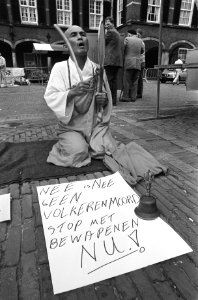 NEE IS NEE
GEEN
VOLKERENMOORD
STOP MET
BEWAPENEN
NU!